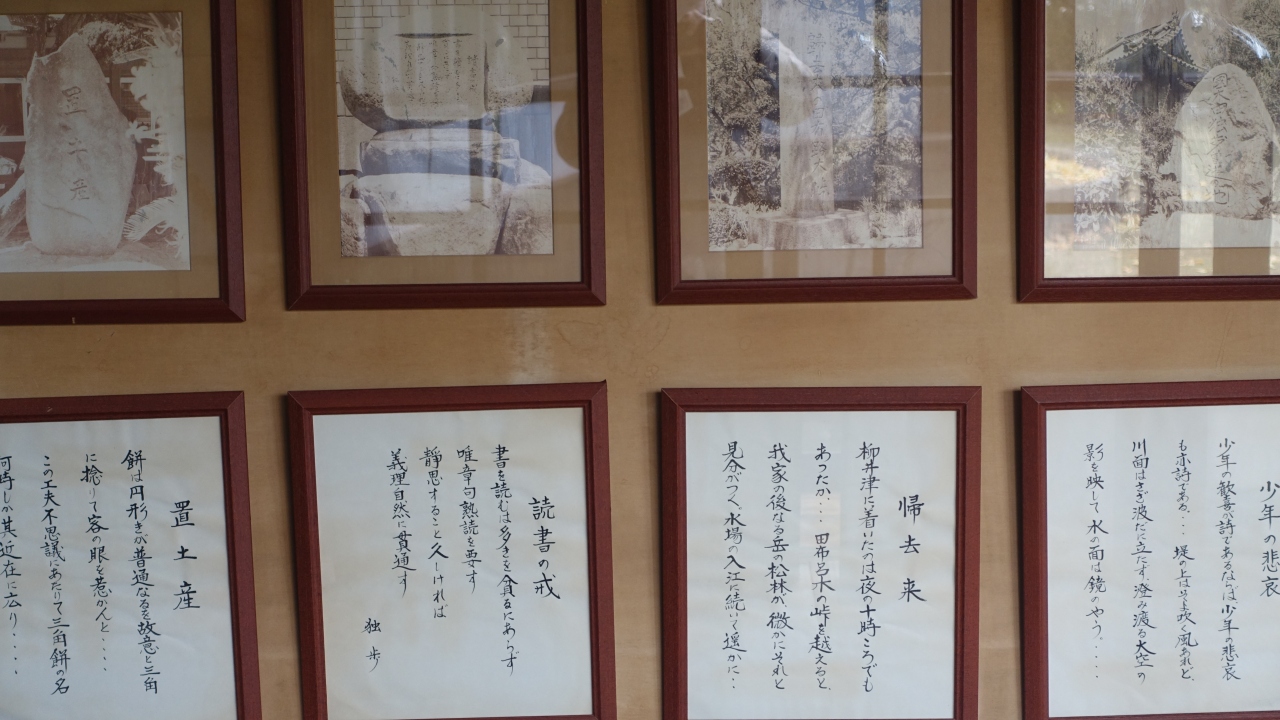 少年の悲哀
少年の歓喜が詩であるならば少年の悲哀
も亦詩である・・・堤の上はそよ吹く風あれど、
川面はさざ波だに立たず、澄み渡る大空の
影を映して水の面は鏡のやう・・・・
帰去来
柳井津に着いたのは夜の十時ころでも
あったか・・・田布呂木の峠を越えると、
我家の後なる岳の松林が、微かにそれと
見分がつく、水場の入江に続いて遥かに・・
読書の戒
書を読むは多きを貪るにあらず
唯章句熟読を要す
静思すること久しければ
義理自然に貫通す
独歩
置土産
餅は円形きが普通なるを故意と三角
に捻りて客の眼を惹かんと・・・・
この工夫不思議にあたりて三角餅の名
何時しか其近在に広り・・・・
置土産